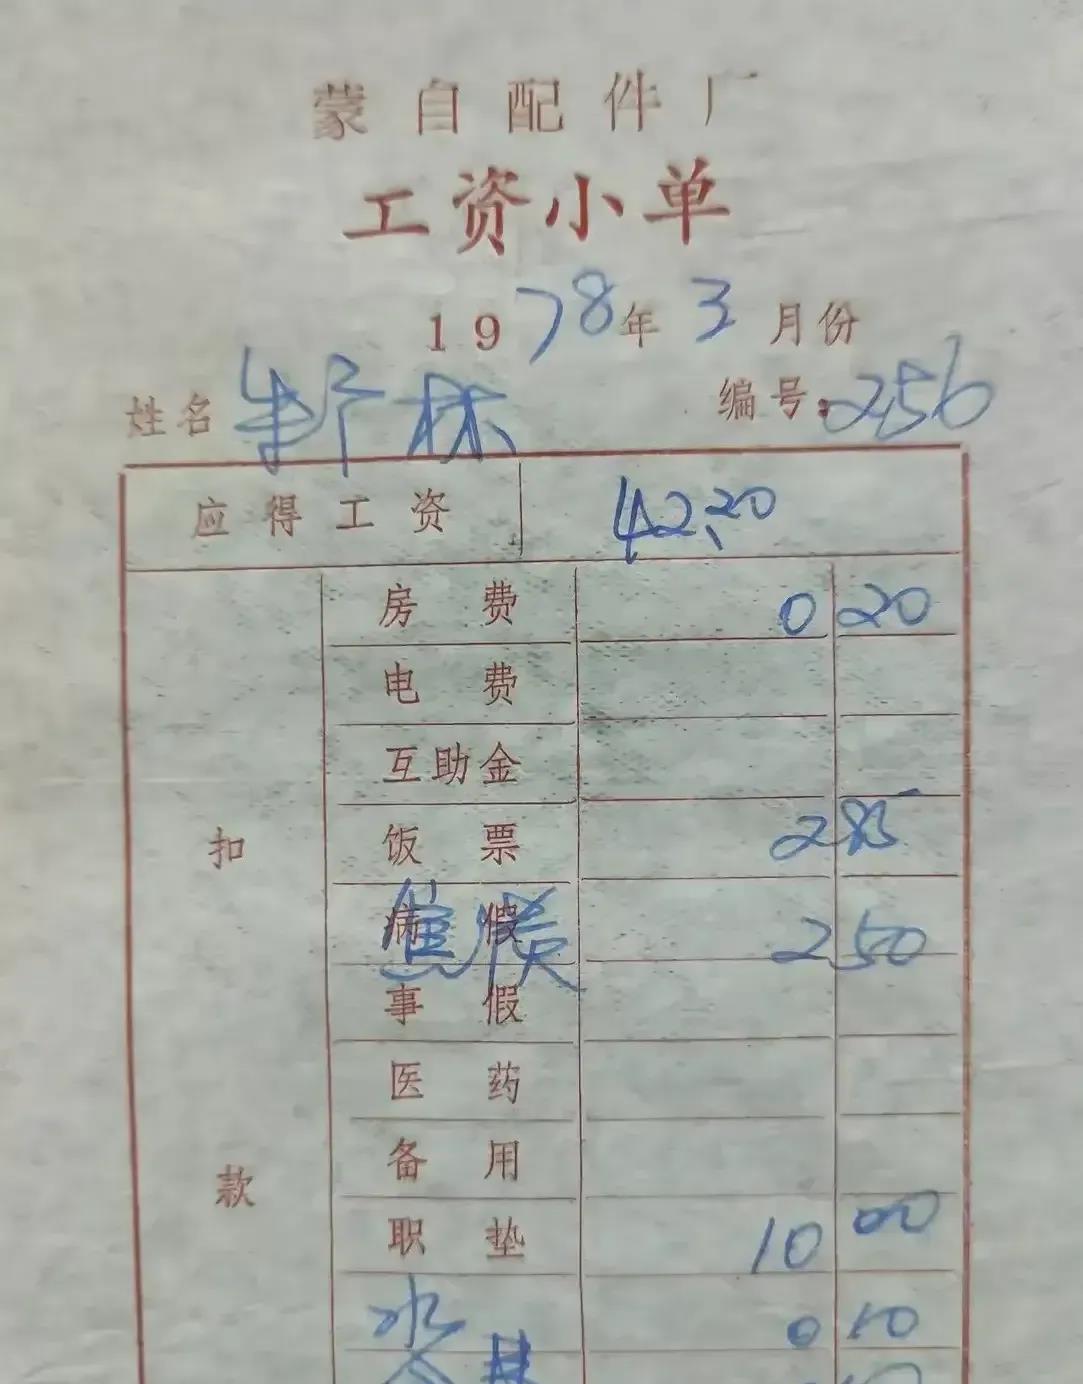 蒙自配件厂
工资小单
1978年3月份
姓名 林 编号:256
应得工资 42.20
扣款
房费 0 20
电费
互助金
饭票 2 85
病假 2 50
事假
医药
备用
职垫 10 00
水 0 10